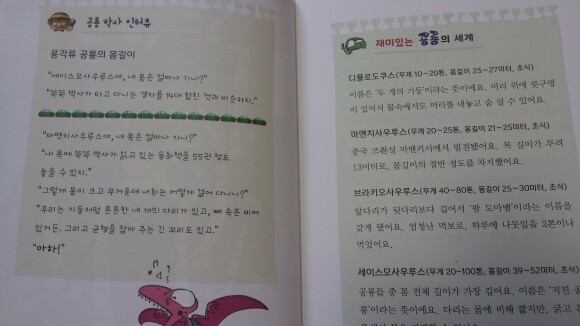 공룡 박사 인터뷰
용각류 공룡의 몸길이
"세이스모사우루스야, 네 몸은 얼마나 기니?"
"뚝뚝 박사가 타고 다니는 경차를 14대 합친 것과 비슷하지."
"마멘치사우루스야, 네 목은 얼마나 기니?"
"내 목에 뚝뚝 박사가 읽고 있는 동화책을 55권 정도
놓을 수 있지."
"그렇게 몸이 크고 무거운데 너희는 어떻게 걸어 다니니?"
"우리는 기둥처럼 튼튼한 네 개의 다리가 있고, 뼈 속은 비어
있거든. 그리고 균형을 잡아 주는 긴 꼬리도 있고."
"아하!"
재미있는 공룡의 세계
디플로도쿠스(무게 10~20톤, 몸길이 25~27미터, 초식)
이름은 '두 개의 기둥'이라는 뜻이에요. 머리 위에 콧구멍
이 있어서 물속에서도 머리를 내놓고 숨 쉴 수 있어요.
마멘치사우루스(무게 20~25톤, 몸길이 21~25미터, 초식)
중국 쓰촨성 마멘키사에서 발견됐어요. 목 길이가 무려
13미터로, 몸길이의 절반 정도를 차지했어요.
브라키오사우루스(무게 40~80톤, 몸길이 25~30미터, 초식)
앞다리가 뒷다리보다 길어서 '팔 도마뱀'이라는 이름을
갖게 됐어요. 엄청난 먹보로, 하루에 나뭇잎을 2톤이나
먹었어요.
세이스모사우루스(무게 20~100톤, 몸길이 39~52미터, 초식)
공룡들 중 몸 전체 길이가 가장 길어요. 이름은 '지진 공
룡'이라는 뜻이에요. 다리는 몸에 비해 짧지만, 굵고